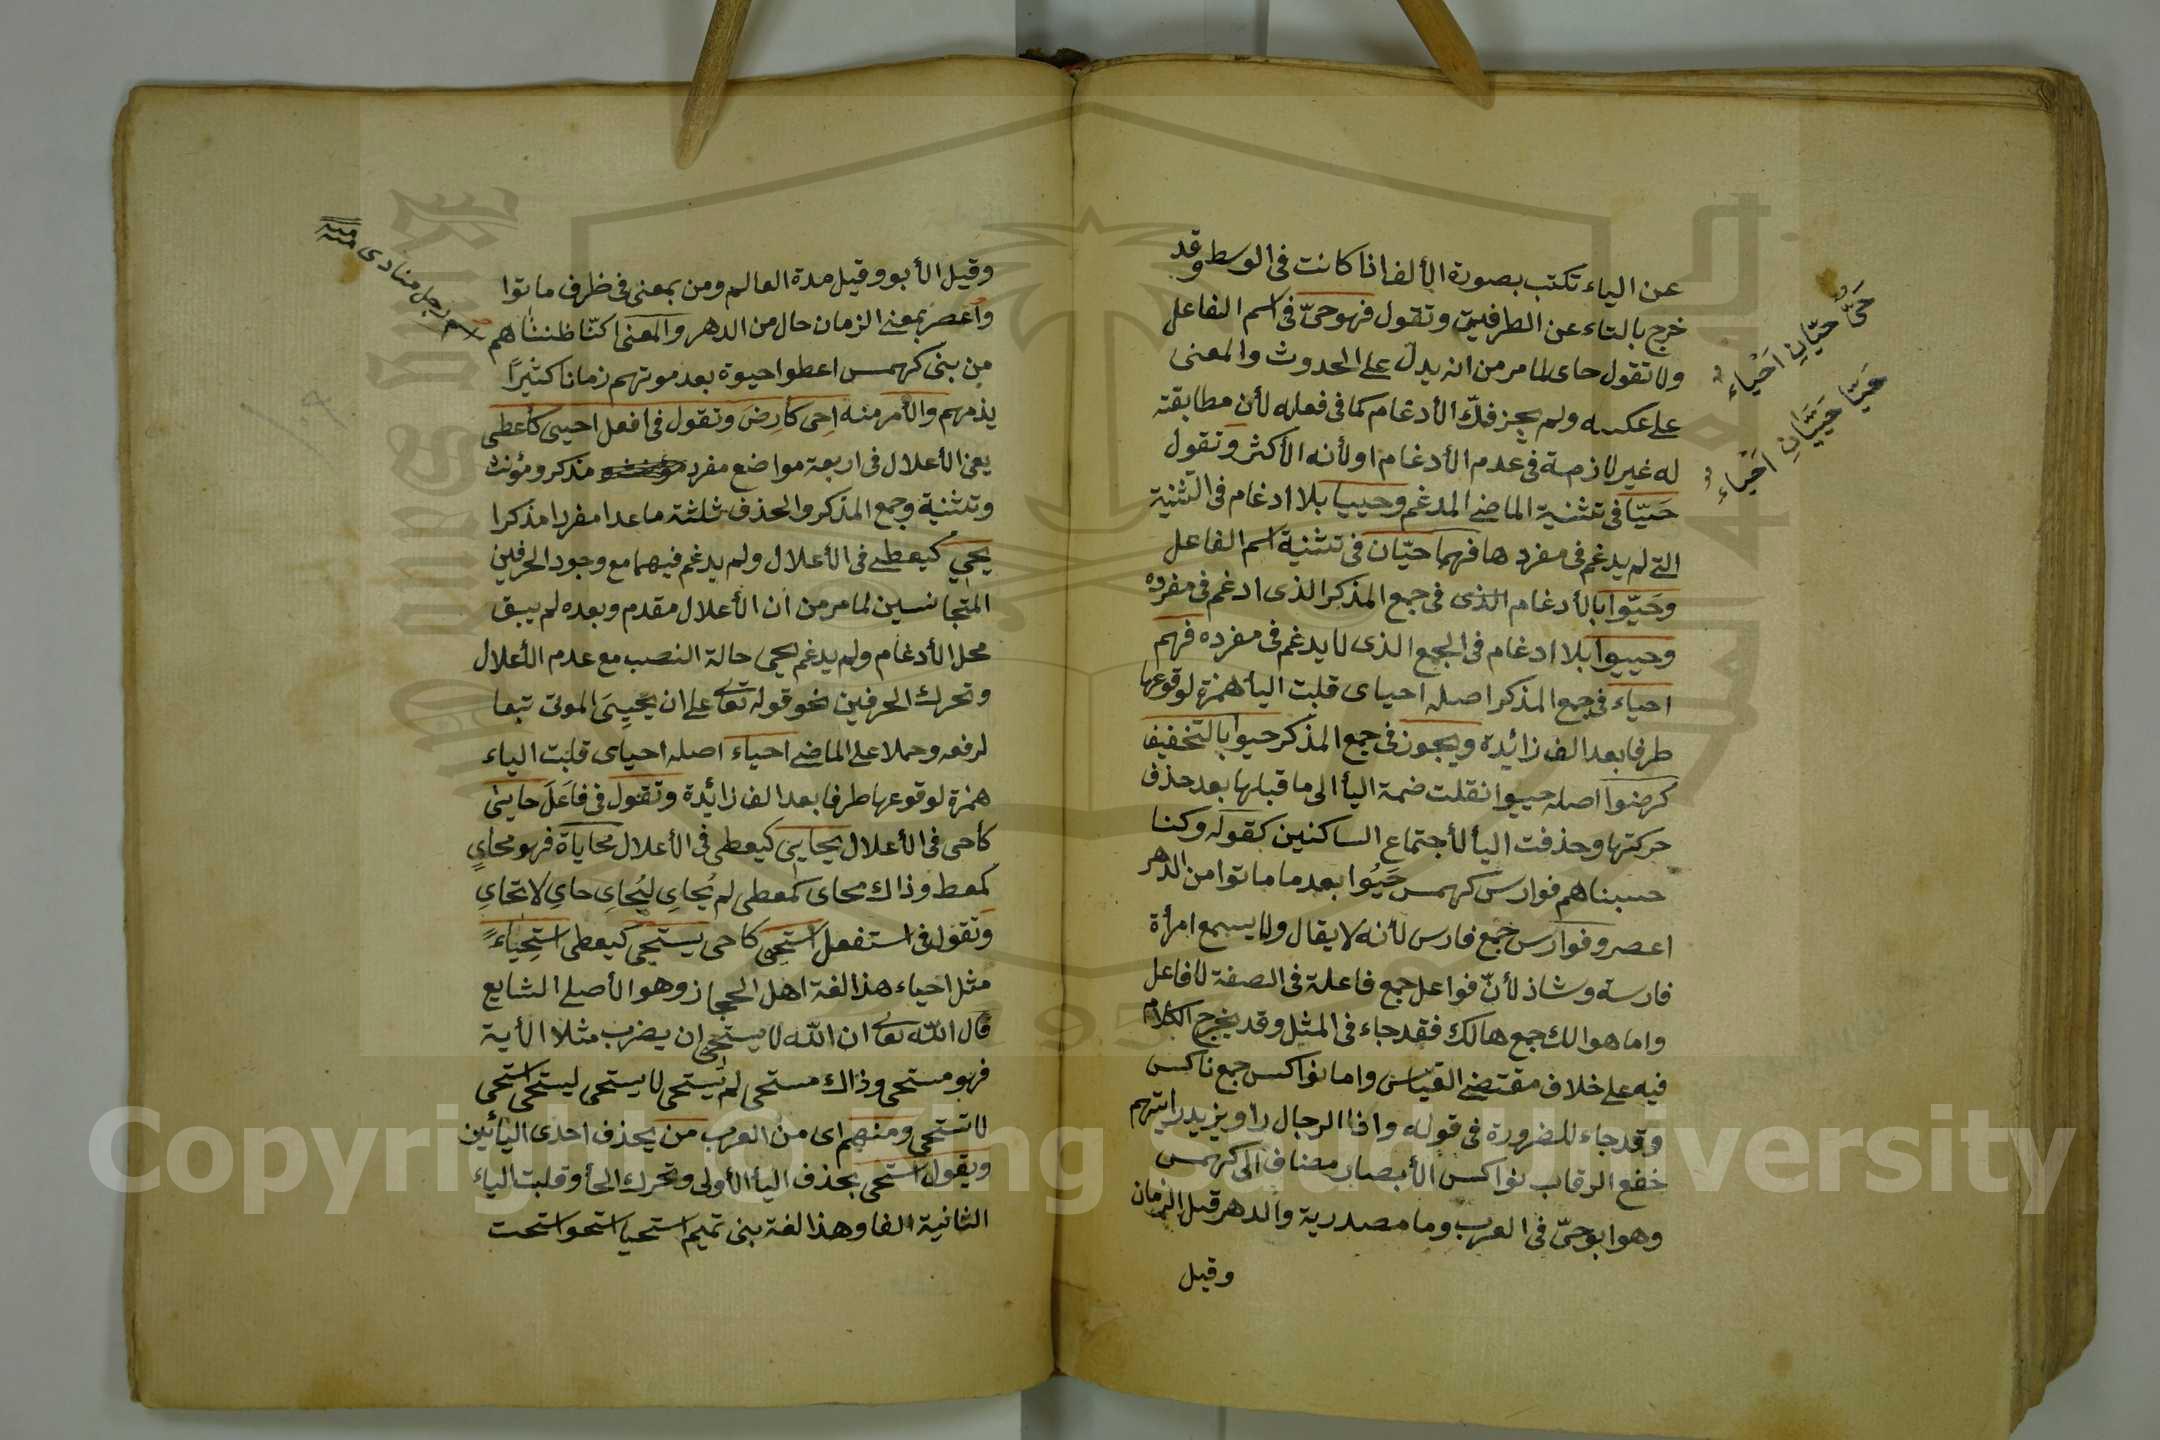 عن الياء تكتب بصورة الألف اذا كانت فى الوسط وقد
خرج بالتاء عن الطرفية وتقول فهو حىّ فى اسم الفاعل
ولا تقول حاى لما مر من انه يدل على الحدوث والمعنى
على عكسه ولم يجز فكّ الأدغام كما فى فعله لأن مطابقته
له غير لازمة فى عدم الأدغام او لأنه الأكثر وتقول
حَيّا فى تثنية الماضى المدغم وحييا بلا ادغام فى التثنية
التى لم يدغم فى مفردها فهما حيّان فى تثنية اسم الفاعل
وحَيّوا بالأدغام الذى فى جمع المذكر الذى ادغم فى مفرده
وحييوا بلا ادغام فى الجمع الذى لا يدغم فى مفرده فهم
احياء فى جمع المذكر اصله احياى قلبت اليأ همزة لوقوعها
طرفا بعد الف زائدة ويجوز فى جمع المذكر حيوا بالتخفيف
كرضوا اصله حييوا نقلت ضمة اليأ الى ما قبلها بعد حذف
حركتها وحذفت اليأ لأجتماع الساكنين كقوله وكنا
حسبناهم فوارس كهمس حَيُوا بعدما ماتوا من الدهر
اعصر وفوارس جمع فارس لأنه لا يقال ولا يسمع امرأة
فارسة وشاذ لأنّ فواعل جمع فاعلة فى الصفة لا فاعل
واما هوالك جمع هالك فقد جاء فى المثل وقد يخرج الكلام
فيه على خلاف مقتضى القياس واما نواكس جمع ناكس
وقد جاء للضرورة فى قوله واذا الرجال راو يزيد رايتهم
خضع الرقاب نواكس الأبصار مضاف الى كهمس
وهو ابو حىّ فى العرب وما مصدرية والدهر قيل الزمان
وقيل
حَىٌّ حيّانِ اَحْياءٌ
حَييا حَيِيَّانِ احْياءٌ
وقيل الأبو وقيل مدة العالم ومن بمعنى فى ظرف ماتوا
واعصر بمعنى الزمان حال من الدهر والمعنى كنّا ظننّاهم
من بنى كهمس اعطوا حيوة بعد موتهم زمانا كثيرًا
يذمهم والأمر منه اِحى كارضَ وتقول فى افعل احيى كأعطى
يعنى الأعلال فى اربعة مواضع مفرد مذكر ومؤنث
وتثنية وجمع المذكر والحذف ثلثة ماعدا مفردا مذكرا
يحيى كيعطى فى الأعلال ولم يدغم فيهما مع وجود الحرفين
المتجانسين لما مر من ان الأعلال مقدم وبعده لم يبق
محل الأدغام ولم يدغم يحيى حالة النصب مع عدم الأعلال
وتحرك الحرفين نحو قوله تعالى على ان يُحْيِىَ الموتى تبعا
لرفعه وحملا على الماضى احياء اصله احياى قلبت الياء
همزة لوقوعها طرفا بعد الف زائدة وتقول فى فاعَلَ حايىٰ
كاحى فى الأعلال يحايى كيعطى فى الأعلال محاياة فهو محاىٍ
كمعط وذاك محاى كمعطى لم يُحاىِ ليُحاىِ حاىِ لا تحاىِ
وتقول فى استفعل استحيى كاحى يستحيى كيعطى استِحياءً
مثل احياء هذا لغة اهل الحجاز وهو الأصلى الشايع
قال الله تعالى ان الله لا يستحيى ان يضرب مثلا الأية
فهو مستحى وذاك مستحى لم يَستحى لا يستحى ليستحى استحى
لا تستحى ومنهم اى من العرب من يحذف احدى اليائين
ويقول استحى بحذف اليأ الأولى وتحرك الحأ وقلبت الياء
الثانية الفا وهذا لغة بنى تميم استحيا استحوا استحت